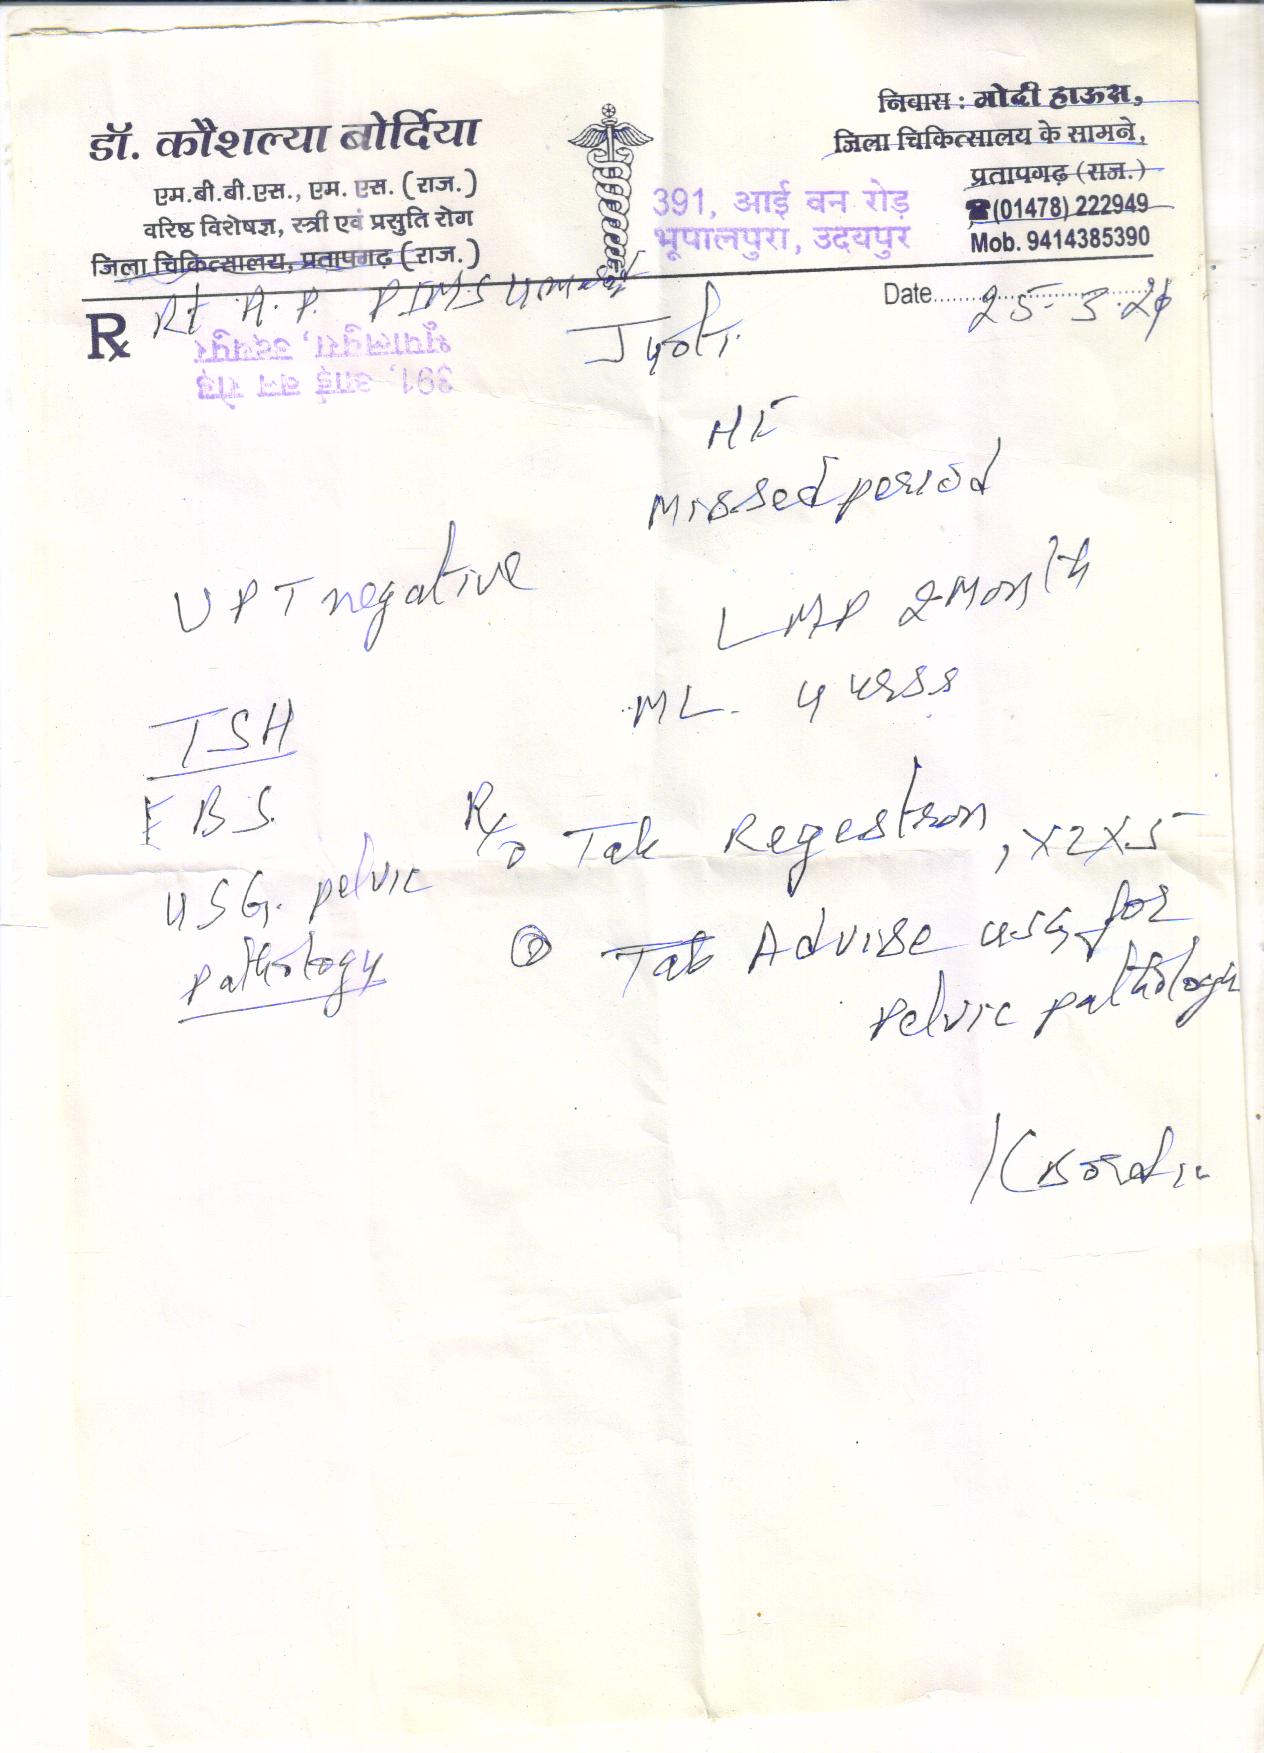 डॉ. कौशल्या बोर्दिया
एम.बी.बी.एस., एम. एस. (राज.)
वरिष्ठ विशेषज्ञ, स्त्री एवं प्रसुति रोग
जिला चिकित्सालय, प्रतापगढ़ (राज.)
391, आई वन रोड़
भूपालपुरा, उदयपुर
निवास : मोदी हाऊस,
जिला चिकित्सालय के सामने,
प्रतापगढ़ (राज.)
☎(01478) 222949
Mob. 9414385390
Rx
Rt A.P. PIMS
Date 25-3-21
391, आई वन रोड़
भूपालपुरा, उदयपुर
Jyoti
Missed period
UPT negative
LMP 2 Month
ML. 4
TSH
BS.
USG. pelvic
pathology
Tab Regestron, x2x5
② Tab Advise USG for
pelvic pathology
KBordia